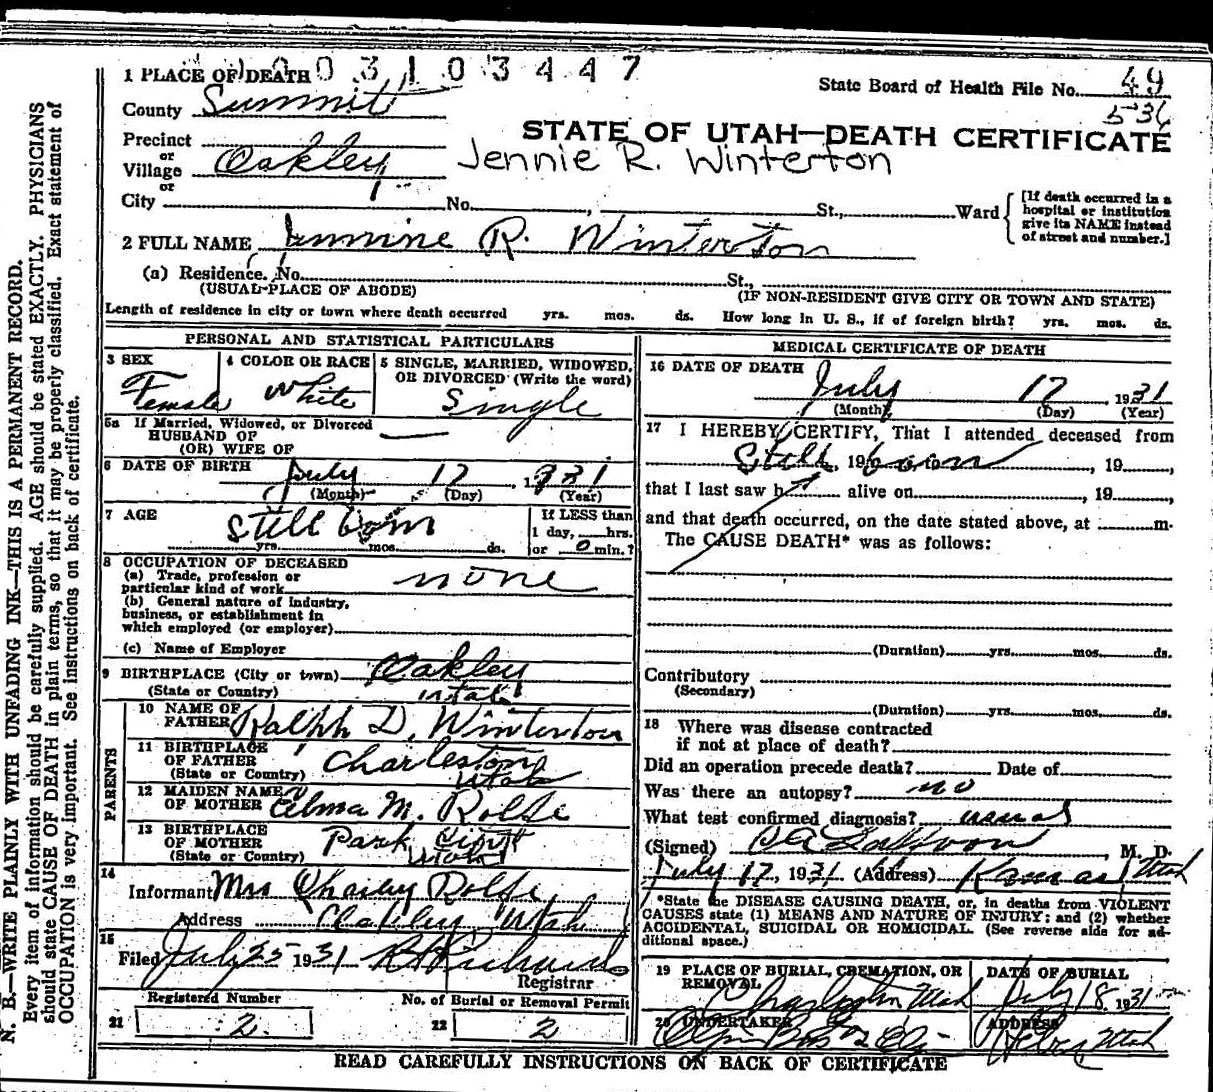 1 PLACE OF DEATH 0 0 3 1 0 3 4 4 7
State Board of Health File No. 49
536
County Summit
STATE OF UTAH—DEATH CERTIFICATE
Precinct
or
Village Oakley
Jennie R. Winterton
or
City No. , St., Ward
[If death occurred in a hospital or institution give its NAME instead of street and number.]
2 FULL NAME R. Winterton
(a) Residence. No. St.,
(USUAL PLACE OF ABODE) (IF NON-RESIDENT GIVE CITY OR TOWN AND STATE)
Length of residence in city or town where death occurred yrs. mos. ds. How long in U. S., if of foreign birth? yrs. mos. ds.
PERSONAL AND STATISTICAL PARTICULARS
3 SEX
Female
4 COLOR OR RACE
White
5 SINGLE, MARRIED, WIDOWED,
OR DIVORCED (Write the word)
Single
5a If Married, Widowed, or Divorced
HUSBAND OF
(OR) WIFE OF
6 DATE OF BIRTH July 17, 1931
(Month) (Day) (Year)
7 AGE
Still born
yrs. mos. ds.
If LESS than
1 day, hrs.
or 0 min.?
8 OCCUPATION OF DECEASED
(a) Trade, profession or
particular kind of work none
(b) General nature of industry,
business, or establishment in
which employed (or employer)
(c) Name of Employer
9 BIRTHPLACE (City or town) Oakley
(State or Country) Utah
PARENTS
10 NAME OF
FATHER Ralph D. Winterton
11 BIRTHPLACE
OF FATHER Charleston
(State or Country) Utah
12 MAIDEN NAME
OF MOTHER Elma M. Rolfe
13 BIRTHPLACE
OF MOTHER Park City
(State or Country) Utah
14
Informant Mrs Charley Rolfe
Address Oakley Utah
15
Filed July 25 1931 Richards
Registrar
Registered Number No. of Burial or Removal Permit
21 2 22 2
MEDICAL CERTIFICATE OF DEATH
16 DATE OF DEATH
July 17, 1931
(Month) (Day) (Year)
17 I HEREBY CERTIFY, That I attended deceased from
Still, 19 born , 19 ,
that I last saw h alive on , 19 ,
and that death occurred, on the date stated above, at m.
The CAUSE DEATH* was as follows:
(Duration) yrs. mos. ds.
Contributory
(Secondary)
(Duration) yrs. mos. ds.
18 Where was disease contracted
if not at place of death?
Did an operation precede death? Date of
Was there an autopsy? no
What test confirmed diagnosis? usual
(Signed) , M. D.
July 17, 1931 (Address) Kamas Utah
*State the DISEASE CAUSING DEATH, or, in deaths from VIOLENT
CAUSES state (1) MEANS AND NATURE OF INJURY; and (2) whether
ACCIDENTAL, SUICIDAL OR HOMICIDAL. (See reverse side for ad-
ditional space.)
19 PLACE OF BURIAL, CREMATION, OR
REMOVAL
Charleston Utah
DATE OF BURIAL
July 18 1931
20 UNDERTAKER
ADDRESS
Heber Utah
READ CAREFULLY INSTRUCTIONS ON BACK OF CERTIFICATE
N. B.—WRITE PLAINLY WITH UNFADING INK—THIS IS A PERMANENT RECORD.
Every item of information should be carefully supplied. AGE should be stated EXACTLY. PHYSICIANS
should state CAUSE OF DEATH in plain terms, so that it may be properly classified. Exact statement of
OCCUPATION is very important. See instructions on back of certificate.